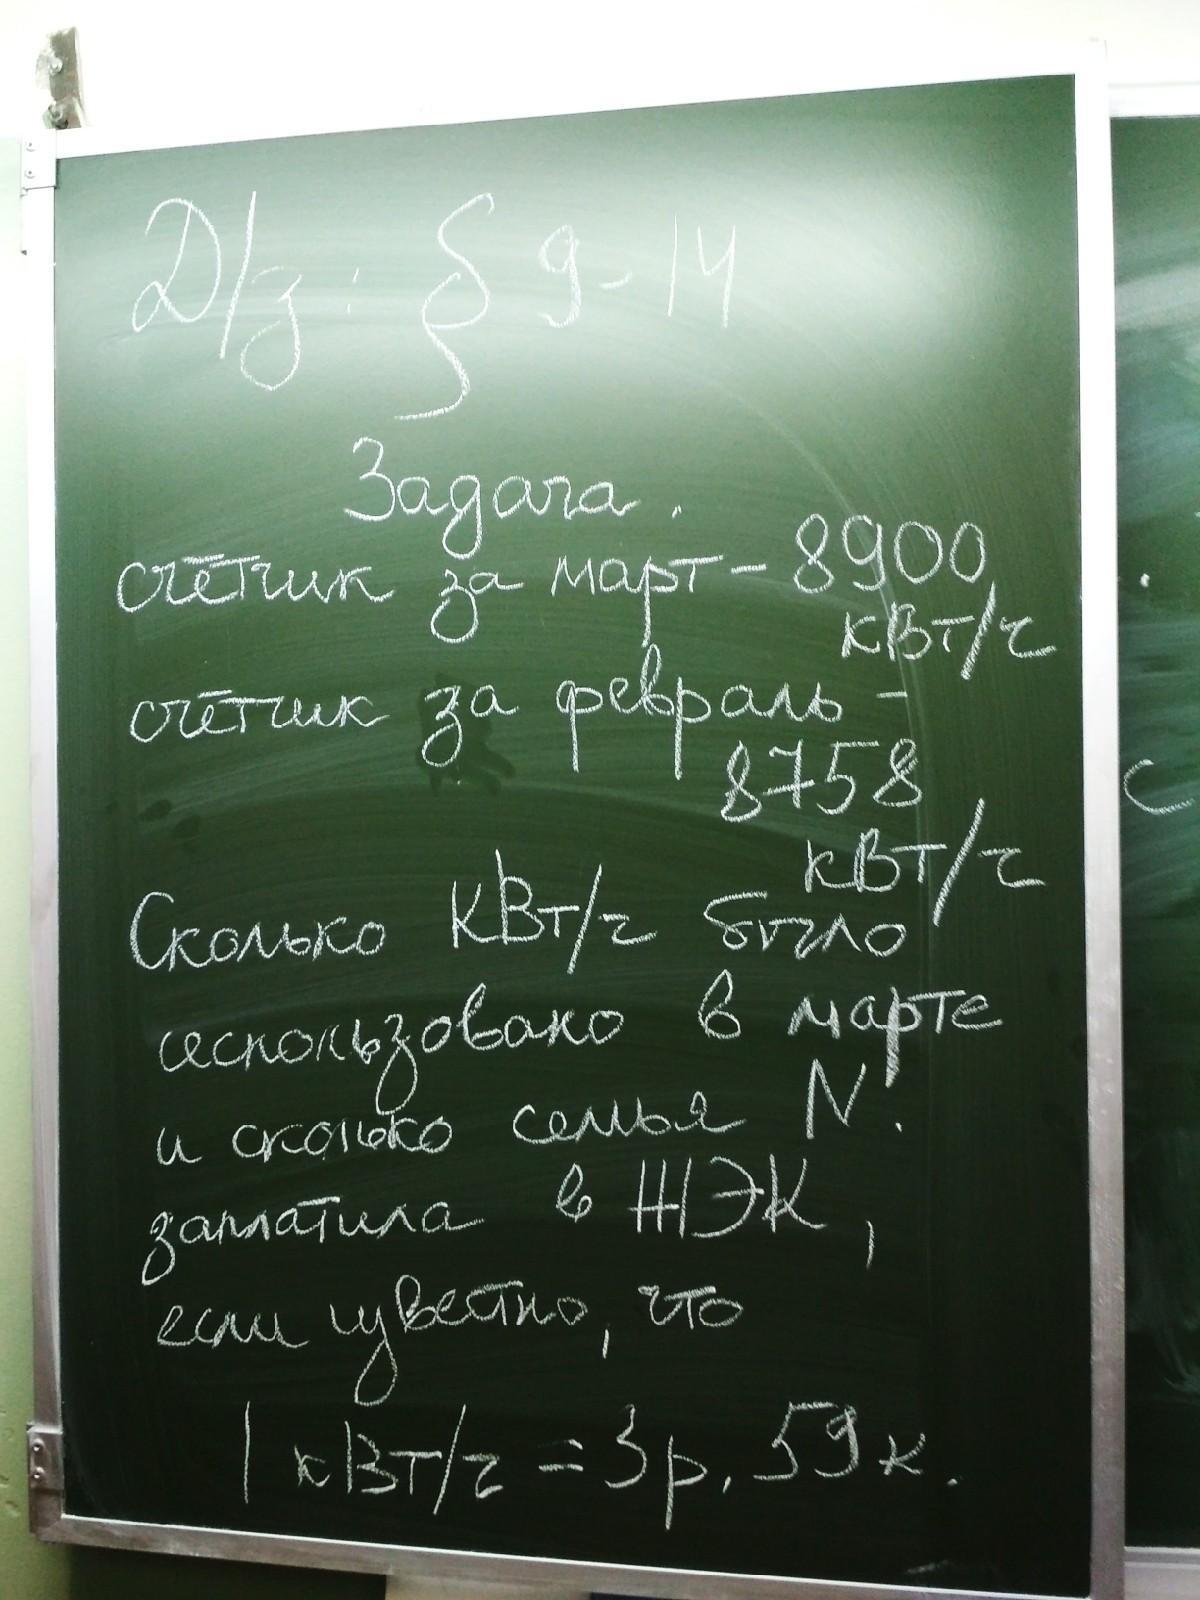 Д/з: § 9-14
Задача.
счётчик за март - 8900
кВт/ч
счётчик за февраль -
8758
кВт/ч
Сколько КВт/ч было
использовано в марте
и сколько семья N.
заплатила в ЖЭК,
если известно, что
1 кВт/ч = 3р. 59к.
с